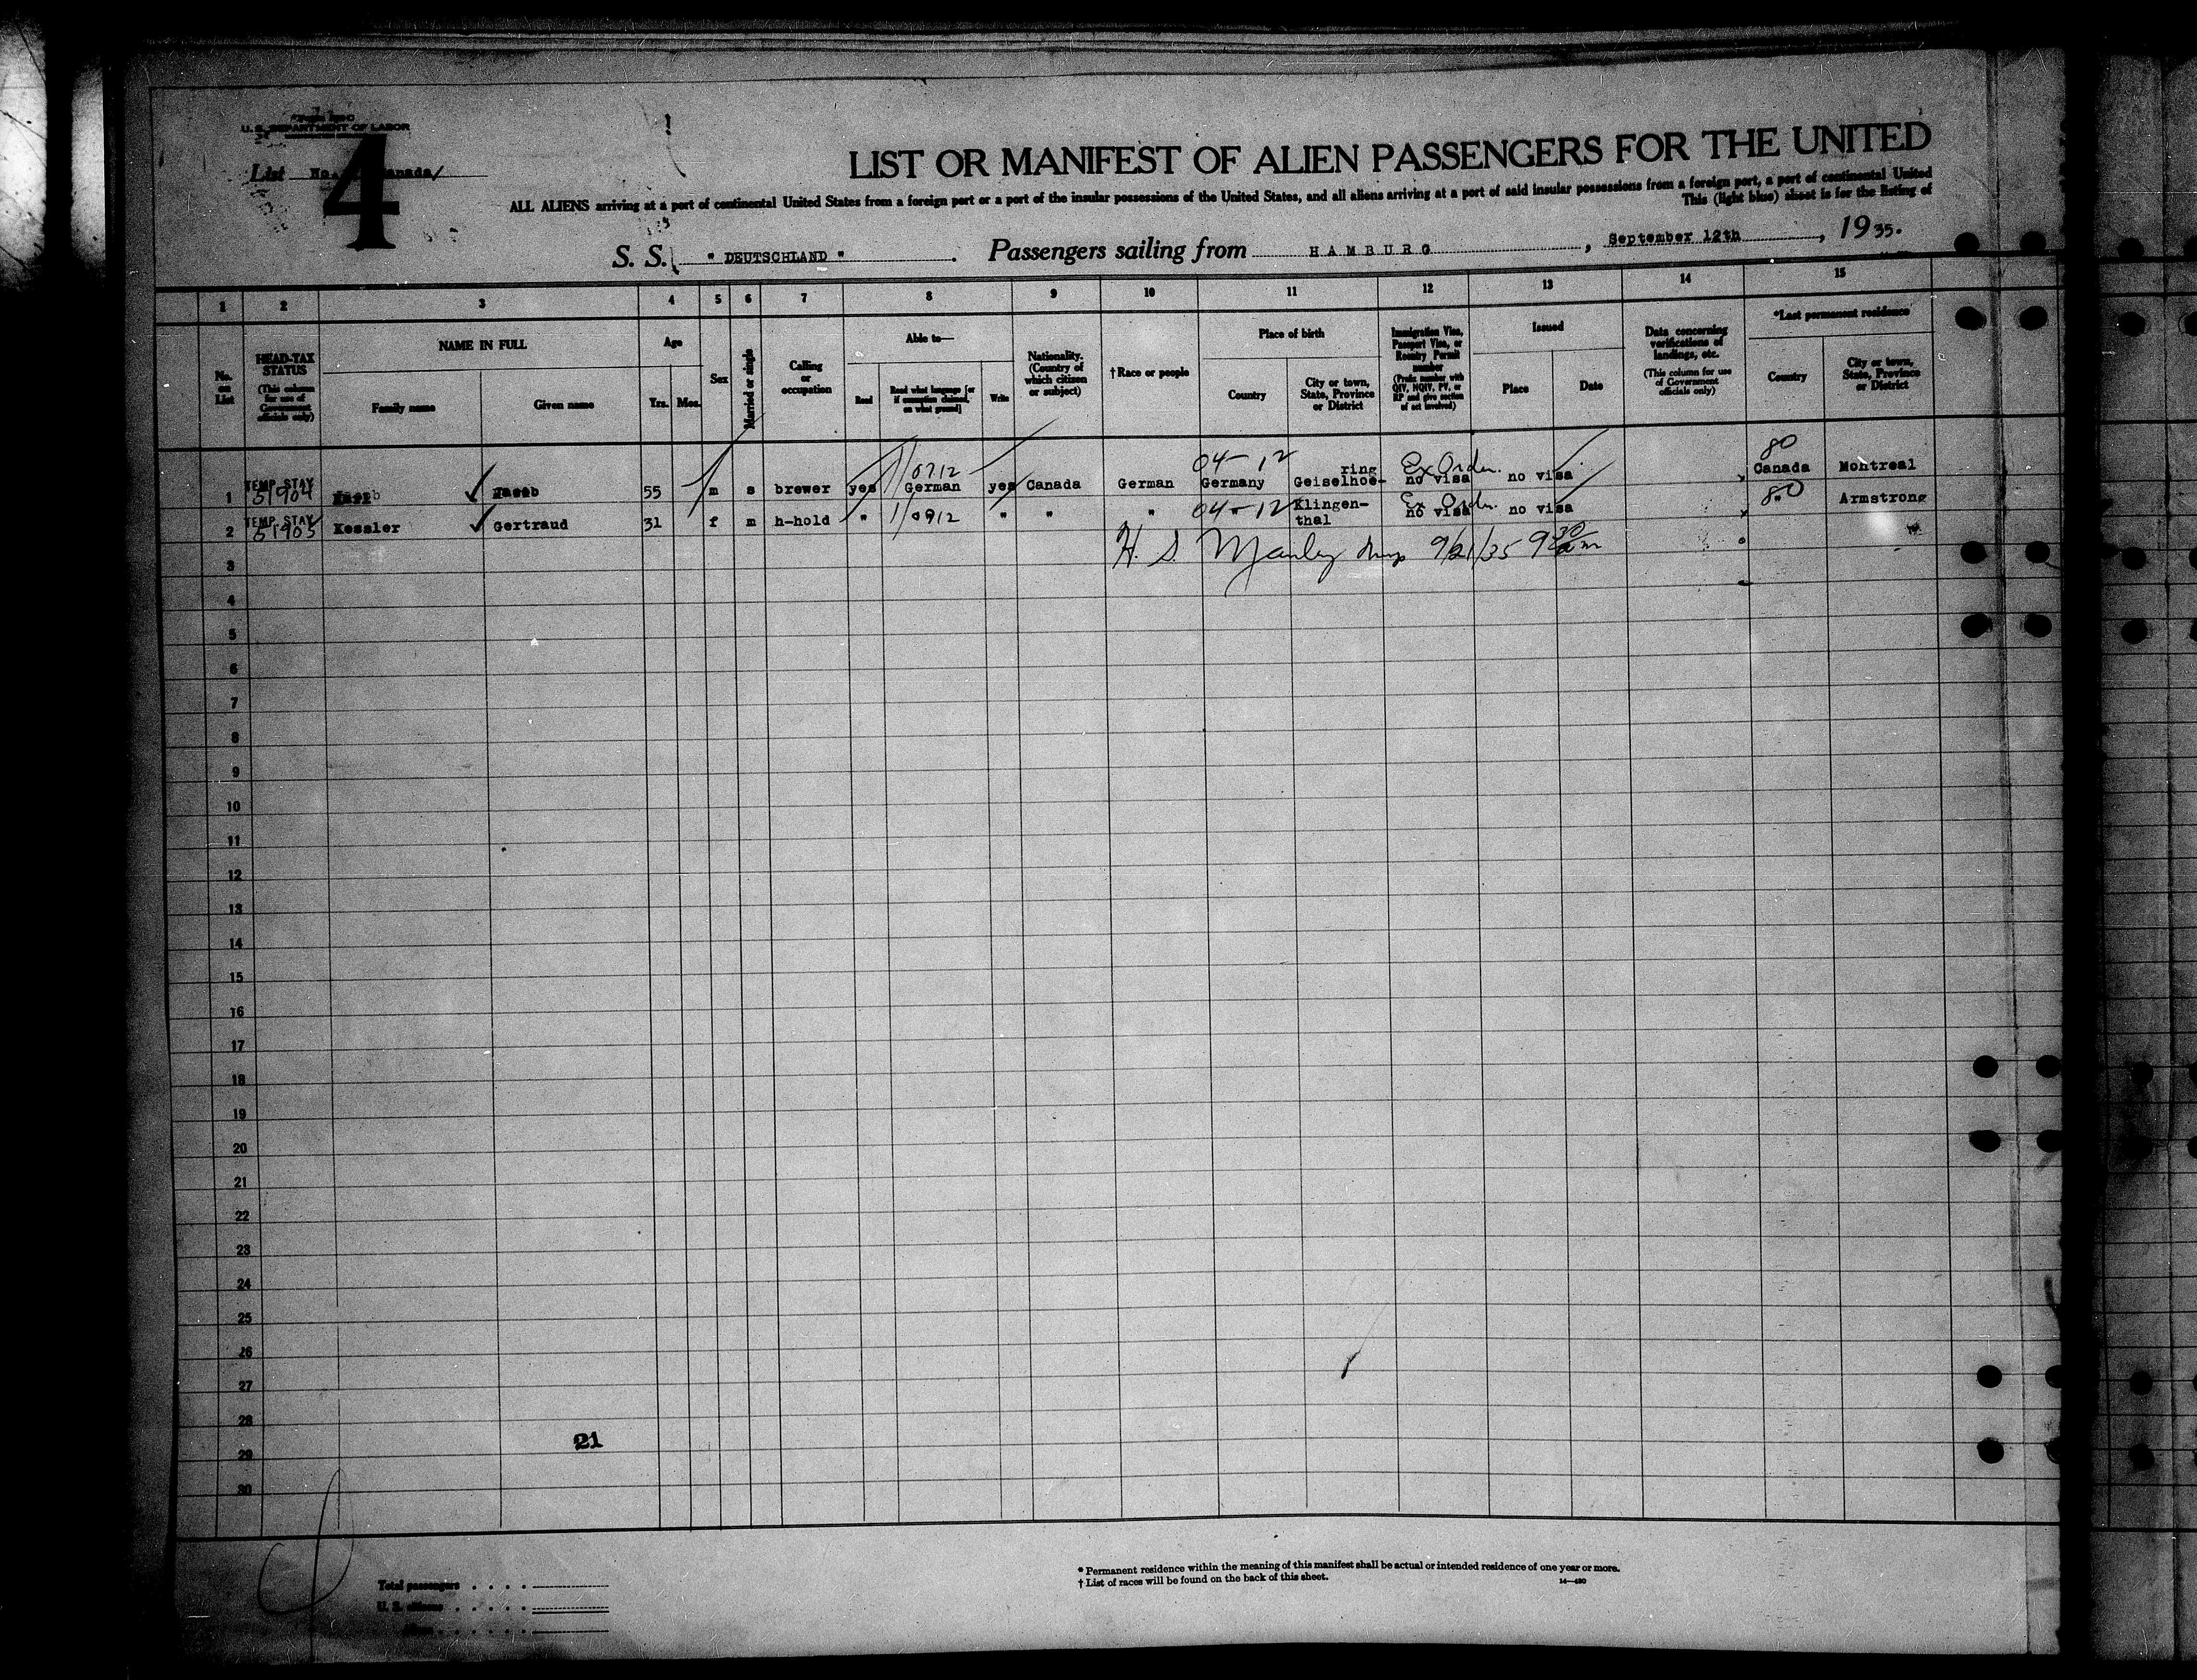 U. S. DEPARTMENT OF LABOR
List No. Canada
4
LIST OR MANIFEST OF ALIEN PASSENGERS FOR THE UNITED
ALL ALIENS arriving at a port of continental United States from a foreign port or a port of the insular possessions of the United States, and all aliens arriving at a port of said insular possessions from a foreign port, a port of continental United
This (light blue) sheet is for the listing of
S. S. " DEUTSCHLAND " . Passengers sailing from HAMBURG , September 12th , 1935.
1 2 3 4 5 6 7 8 9 10 11 12 13 14 15
No. on List
HEAD-TAX STATUS (This column for use of Government officials only)
NAME IN FULL
Family name Given name
Age
Yrs. Mos.
Sex
Married or single
Calling or occupation
Able to—
Read Read what language [or if exemption claimed, on what ground] Write
Nationality. (Country of which citizen or subject)
†Race or people
Place of birth
Country City or town, State, Province or District
Immigration Visa, Passport Visa, or Reentry Permit number (Prefix number with QIV, NQIV, PV, or RP and give section of act involved)
Issued
Place Date
Data concerning verifications of landings, etc. (This column for use of Government officials only)
*Last permanent residence
Country City or town, State, Province or District
0712 04-12 ring Ex Order. 80
1 TEMP. STAY 51904 55 m s brewer yes German yes Canada German Germany Geiselhoe- no visa no visa Canada Montreal
2 TEMP. STAY 51905 Kessler Gertraud 31 f m h-hold " 0912 " " " 04-12 " Klingen-thal Ex Order. no visa no visa 80 " Armstrong
3 H. S. Manley 9/21/35 9 30 am
4
5
6
7
8
9
10
11
12
13
14
15
16
17
18
19
20
21
22
23
24
25
26
27
28
21
29
30
* Permanent residence within the meaning of this manifest shall be actual or intended residence of one year or more.
† List of races will be found on the back of this sheet.
14—430
Total passengers
U. S. citizens